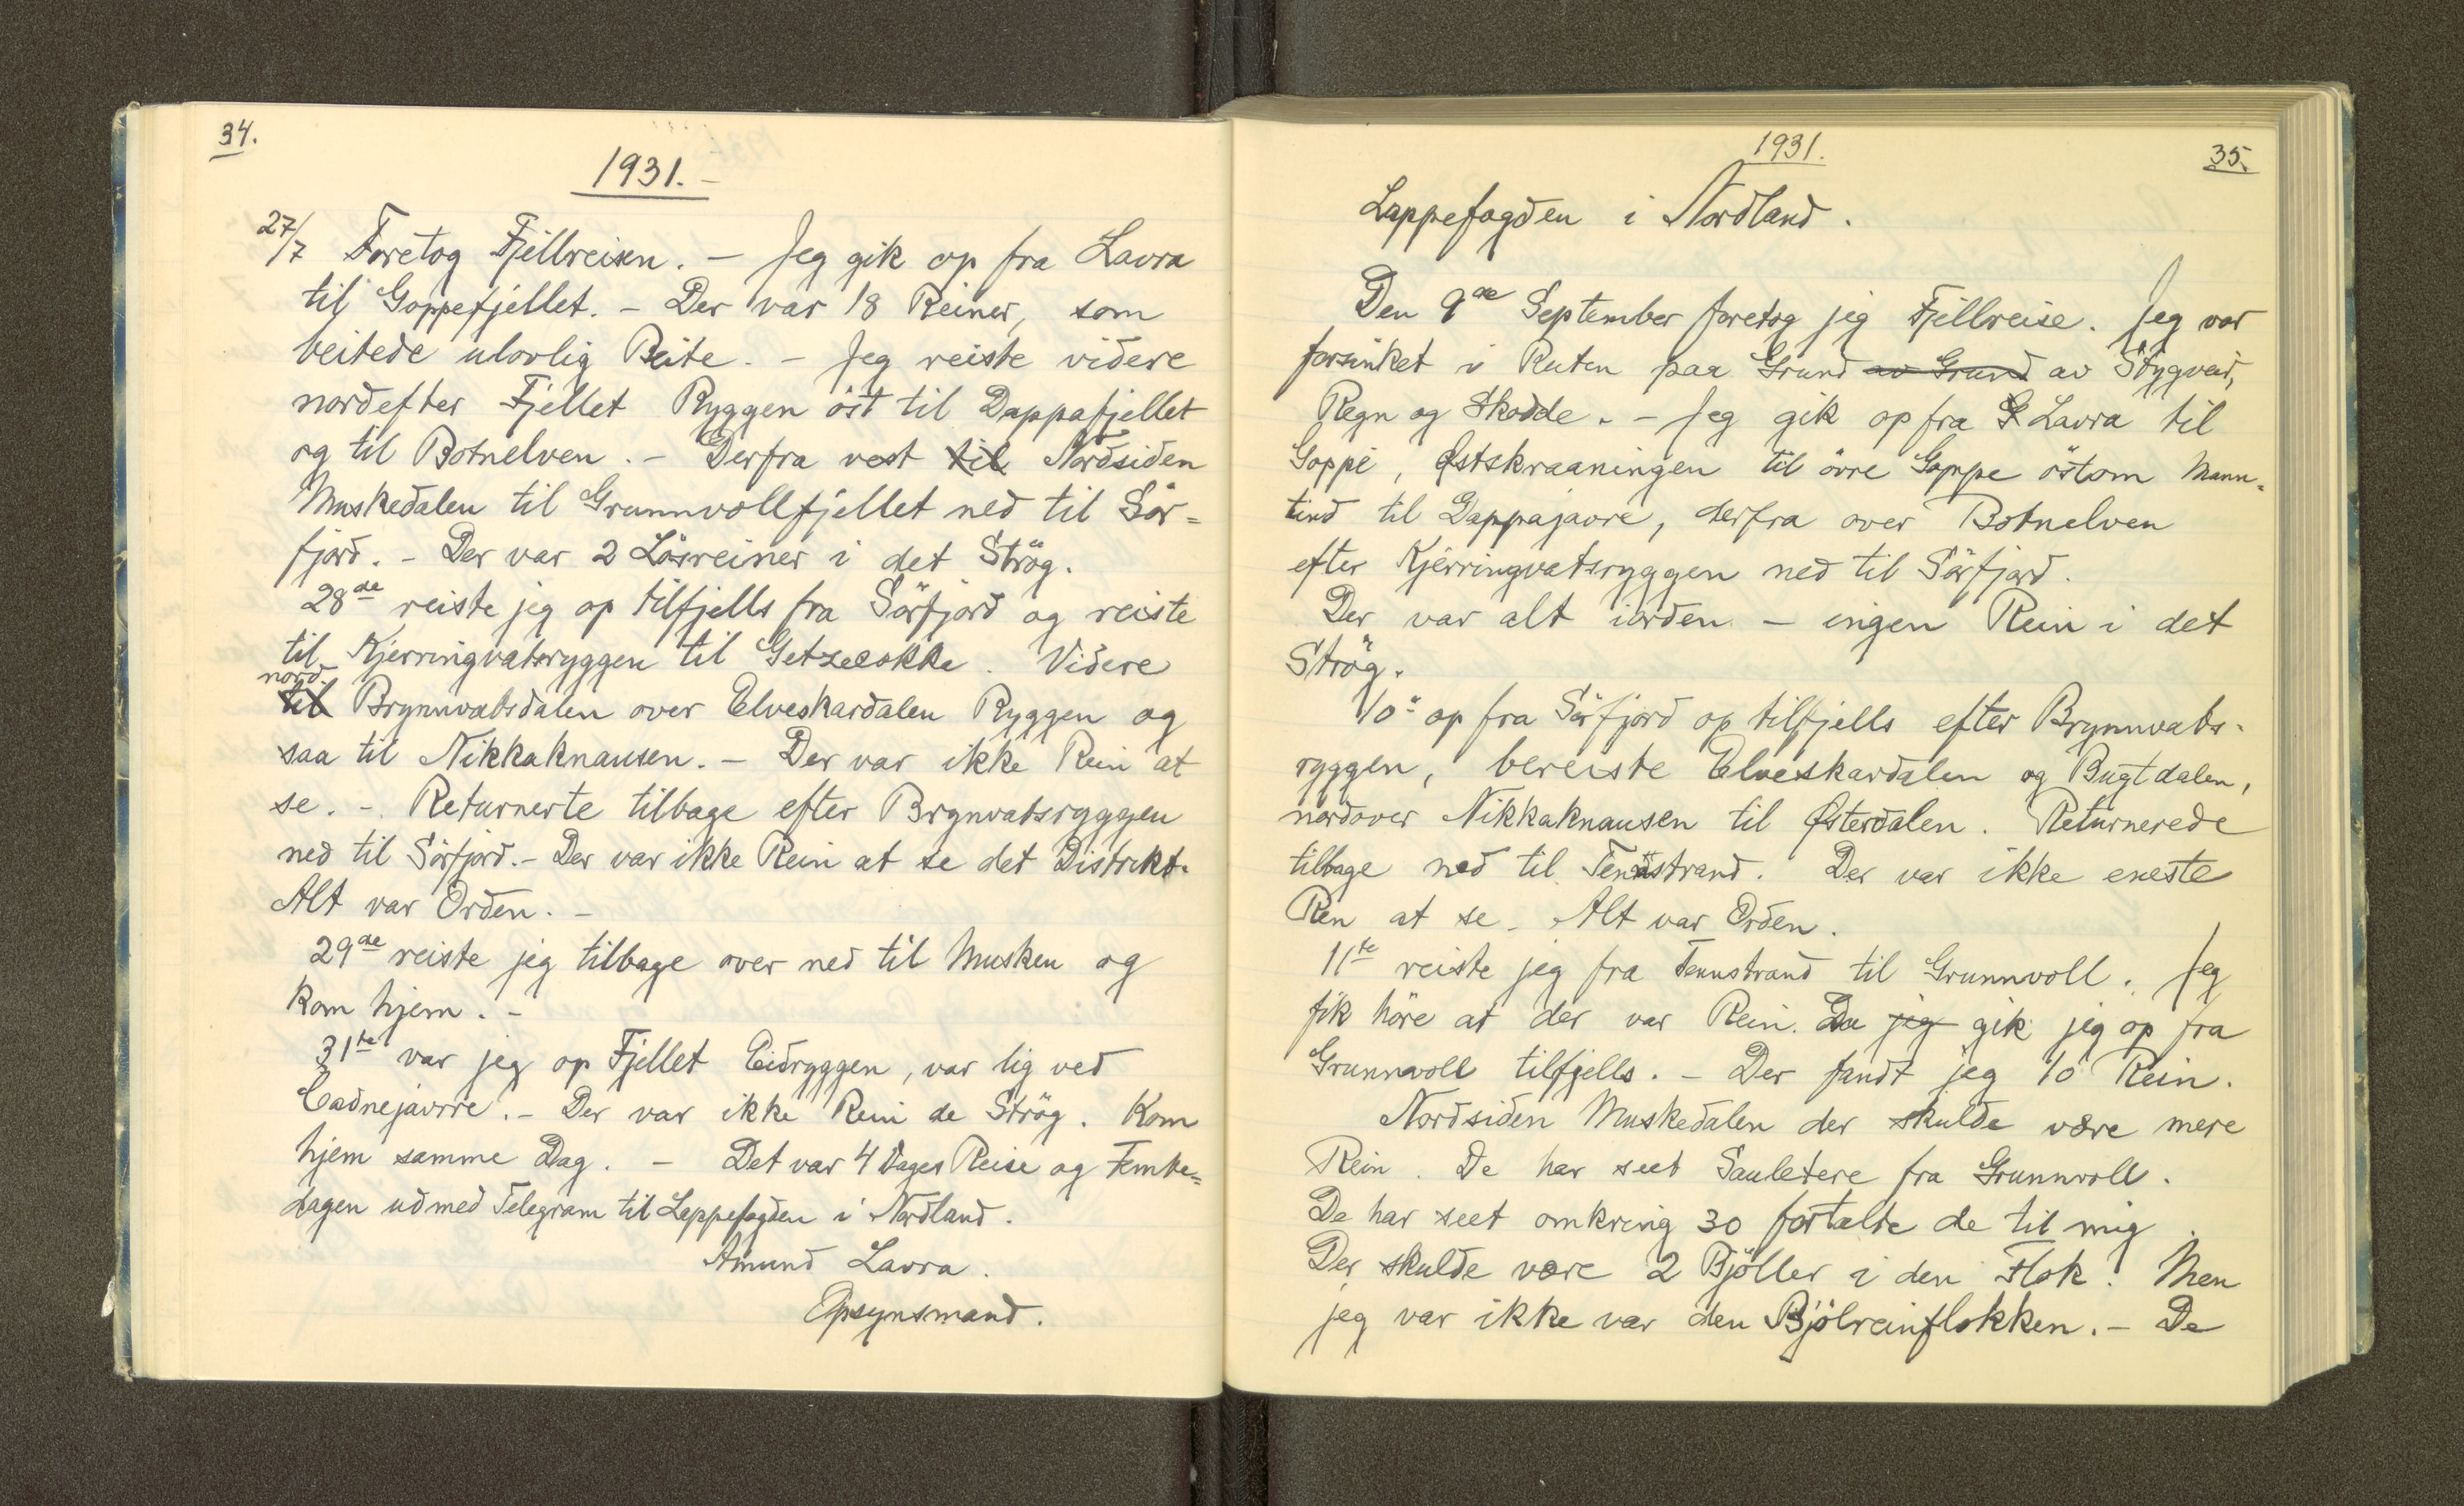 34.
1931. -
27/7 Foretog Fjellreisen. - Jeg gik op fra Lavra
til Goppefjellet. - Der var 18 Reiner, som
beitede ulovlig Beite. - Jeg reiste videre
nordefter Fjellet Ryggen öst til Dappafjellet
og til Botnelven. - Derfra vest til Nordsiden
Muskedalen til Grunnvollfjellet ned til Sör=
fjord. - Der var 2 Lösreiner i det Strög.
28de reiste jeg op tilfjells fra Sörfjord og reiste
til Kjerringvatsryggen til Getzecokka. Videre
nord.
til Brynnvatsdalen over Elveskardalen Ryggen og
saa til Nikkaknausen. - Der var ikke Rein at
se. - Returnerte tilbage efter Brynvatsryggen
ned til Sörfjord. - Der var ikke Rein at se det Distrikt.
Alt var Orden. -
29de reiste jeg tilbage over ned til Musken og
kom hjem. -
31te var jeg op Fjellet Eidryggen, var lig ved
Cadnejavrre. - Der var ikke Rein de Strög. Kom
hjem samme Dag. - Det var 4 Dages Reise og Femte=
dagen ud med Telegram til Lappefogden i Nordland.
Amund Lavra.
Opsynsmand.
1931.
35.
Lappefogden i Nordland.
Den 9de September foretog jeg Fjellreise. Jeg var
forsinket i Ruten paa Grund av Grund av Stygveir,
Regn og Skodde. - Jeg gik op fra G Lavra til
Goppe, Østskraaningen til övre Goppe östom Mann=
tind til Dappajavre, derfra over Botnelven
efter Kjerringvatsryggen ned til Sörfjord.
Der var alt iorden - ingen Rein i det
Strög.
10" op fra Sörfjord op tilfjells efter Brynnvats-
ryggen, bereiste Elveskardalen og Bugtdalen,
nordover Nikkaknausen til Østerdalen. Returnerede
tilbage ned til Tennstrand. Der var ikke eneste
Ren at se - Alt var Orden.
11te reiste jeg fra Tennstrand til Grunnvoll. Jeg
fik höre at der var Rein. Da jeg gik jeg op fra
Grunnvoll tilfjells. - Der fandt jeg 10 Rein.
Nordsiden Muskedalen der skulde være mere
Rein. De har seet Sauletere fra Grunnvoll.
De har seet omkring 30 fortalte de til mig.
Der skulde være 2 Bjöller i den Flok. Men
jeg var ikke var den Bjölreinflokken. - De